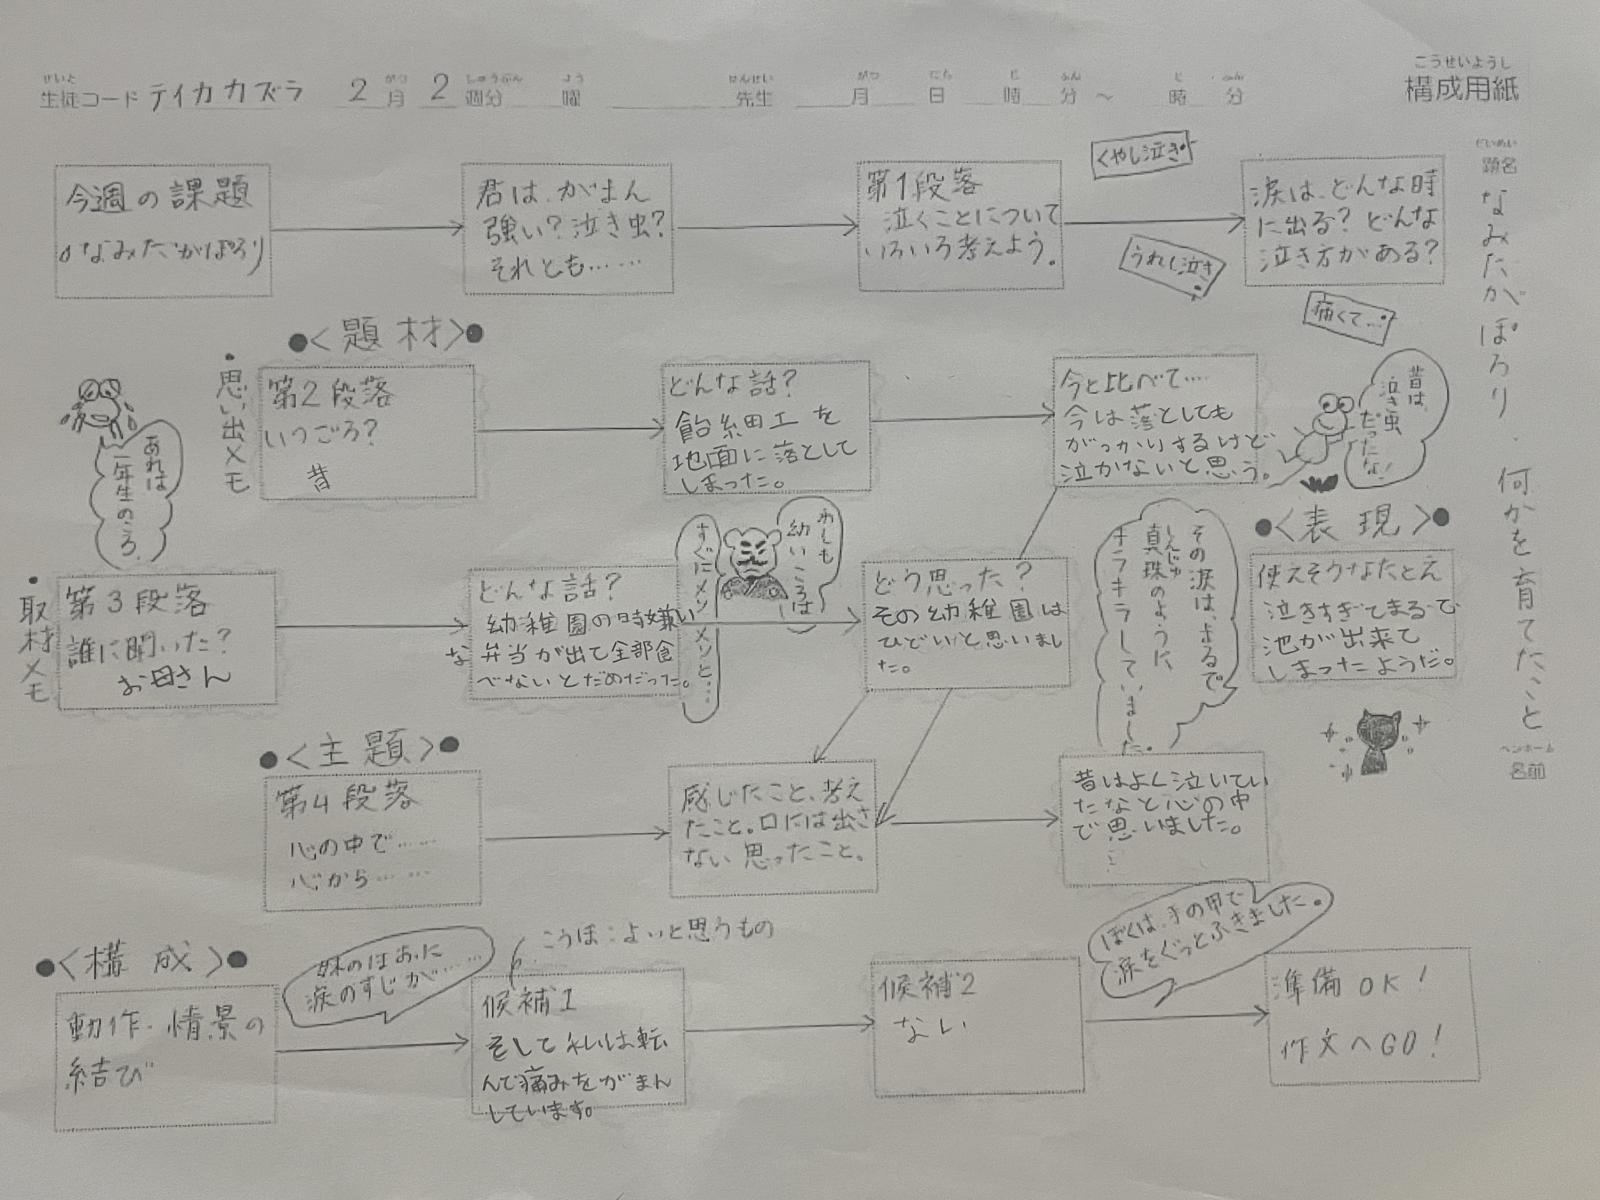 せいと がつ しゅうぶん よう せんせい がつ にち じ ふん じ ふん
生徒コード テイカカズラ 2月 2週分 曜 先生 月 日 時 分 ～ 時 分
こうせいようし
構成用紙
だいめい
題名
なみだがぽろり、何かを育てたこと
ペンネーム
名前
今週の課題
なみだがぽろり
君は、がまん
強い？泣き虫？
それとも……
第1段落
泣くことについて
いろいろ考えよう。
くやし泣き
うれし泣き
痛くて…
涙は、どんな時
に出る？どんな
泣き方がある？
●＜題材＞●
・思い出メモ
あれは
一年生のころ、
第2段落
いつごろ？
昔
どんな話？
飴細工を
地面に落として
しまった。
今と比べて……
今は落としても
がっかりするけど
泣かないと思う。
昔は、
泣き虫
だったな！
・取材メモ
第3段落
誰に聞いた？
お母さん
どんな話？
幼稚園の時嫌い
な弁当が出て全部食
べないとだめだった。
わしも
幼いころは
すぐにメソメソと…
どう思った？
その幼稚園は
ひどいと思いまし
た。
その涙は、まるで
しんじゅ
真珠のように、
キラキラしていました。
●＜表現＞●
使えそうなたとえ
泣きすぎてまるで
池が出来て
しまったようだ。
●＜主題＞●
第4段落
心の中で……
心から……
感じたこと、考え
たこと。口には出さ
ない思ったこと。
昔はよく泣いてい
たなと心の中
で思いました。
…
●＜構成＞●
動作・情景の
結び
妹のほおに
涙のすじが……
こうほ：よいと思うもの
候補1
そして私は転
んで痛みをがまん
しています。
候補2
ない
ぼくは、手の甲で
涙をぐっとふきました。
準備OK！
作文へGO！